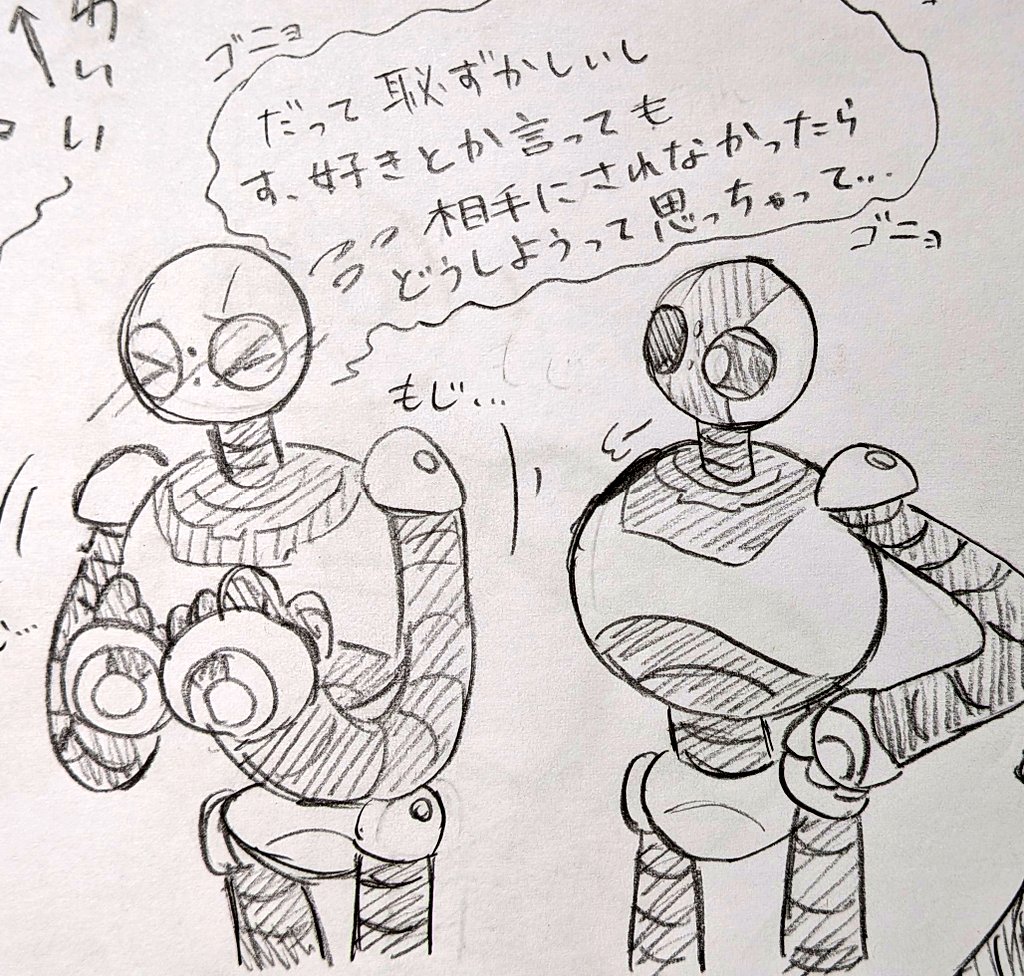 わいい
ゴニョ
だって恥ずかしいし
す、好きとか言っても
相手にされなかったら
どうしようって思っちゃって…
ゴニョ
もじ…